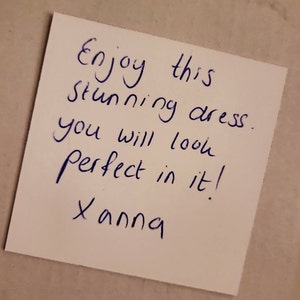 Enjoy this
stunning dress.
you will look
perfect in it!
x anna